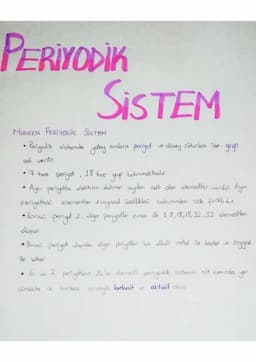 PERİYODİK
SİSTEM
MODERN PERİYODİK SİSTEM
• Periyodik sistemde yatay sıralara periyot ve düşey sütunlara ise grup
adı verilir.
• 7 tane periyot, 18 tane grup bulunmaktadır.
• Aynı periyotta elektron katman sayıları eşit olan elementler vardır. Aynı
periyottaki elementler kimyasal özellikleri bakımından
• Birinci periyot 2, diğer periyotlar sırası ile 8,8,18,18,32,32 elementten
oluşur.
• Birinci periyot dışında diğer periyotlar bir alkali metal ile başlar ve soygaz
ile biter.
• 6. ve 7. periyotların elementi periyodik sistemin alt kısmında yer
lantanit ve aktinit